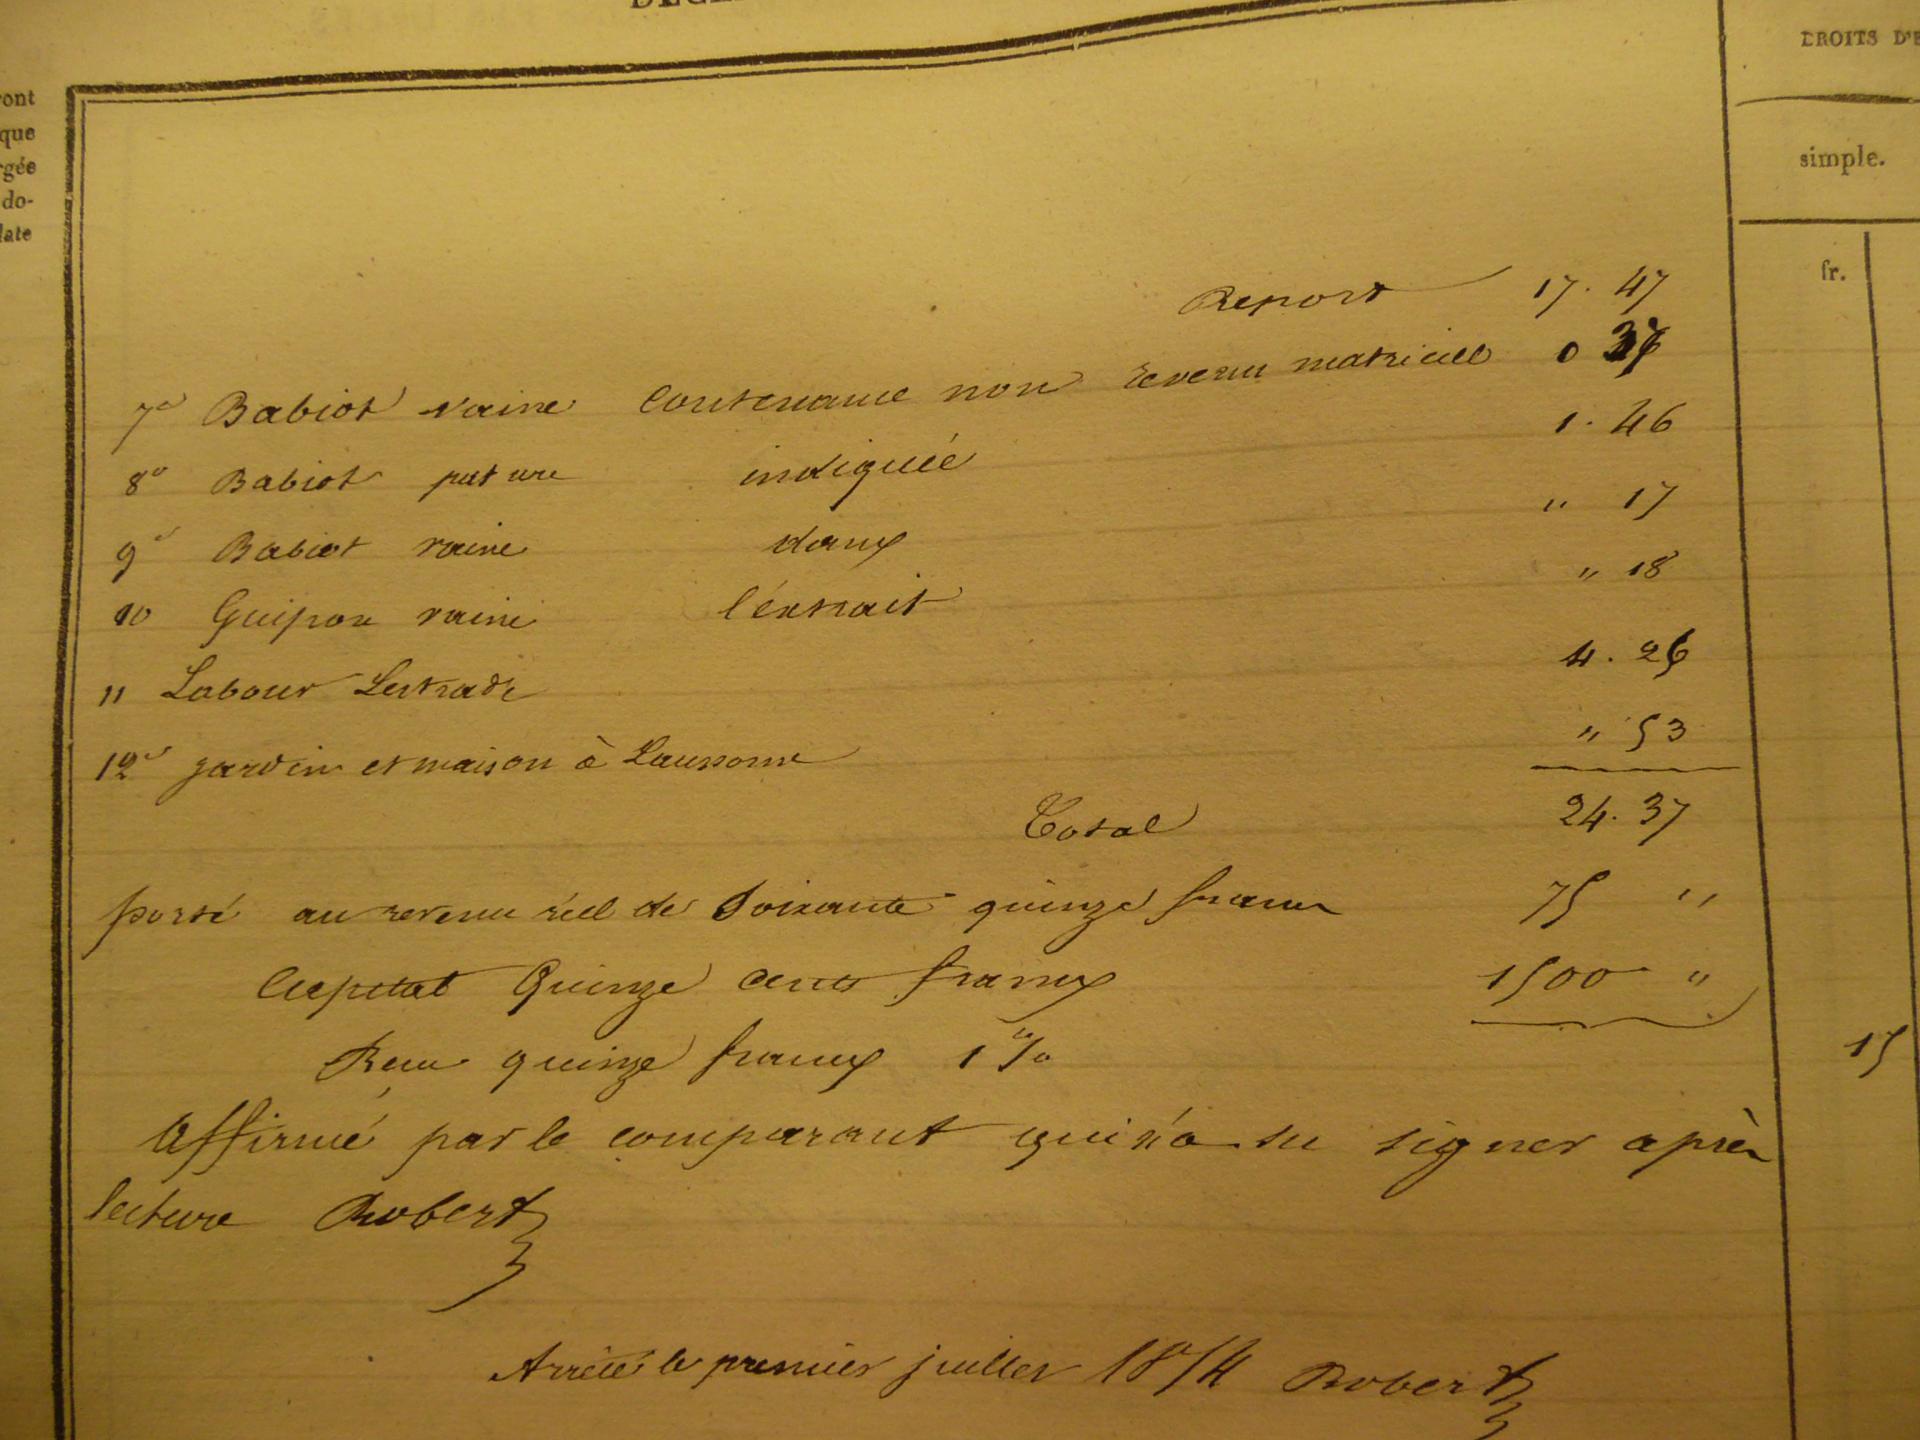 DÉCL
ront
que
rgée
do-
late
DROITS D'E
simple.
fr.
Report 17. 47
7º Babiot vaine Contenance non revenu matriciel 0
8º Babiot pature indiquée 1. 46
9º Babiot vaine dans " 17
10 vaine l'extrait " 18
11 Labour Lestrade 4. 26
12º jardin et maison à Laussonne " 53
Total 24. 37
porté au revenu réel de Soixante quinze francs 75 "
Capital Quinze cents francs 1500 "
Reçu quinze francs 1 % 15
Affirmé par le comparant qui n'a su signer après
lecture Robert
Arrêté le premier juillet 1874 Robert